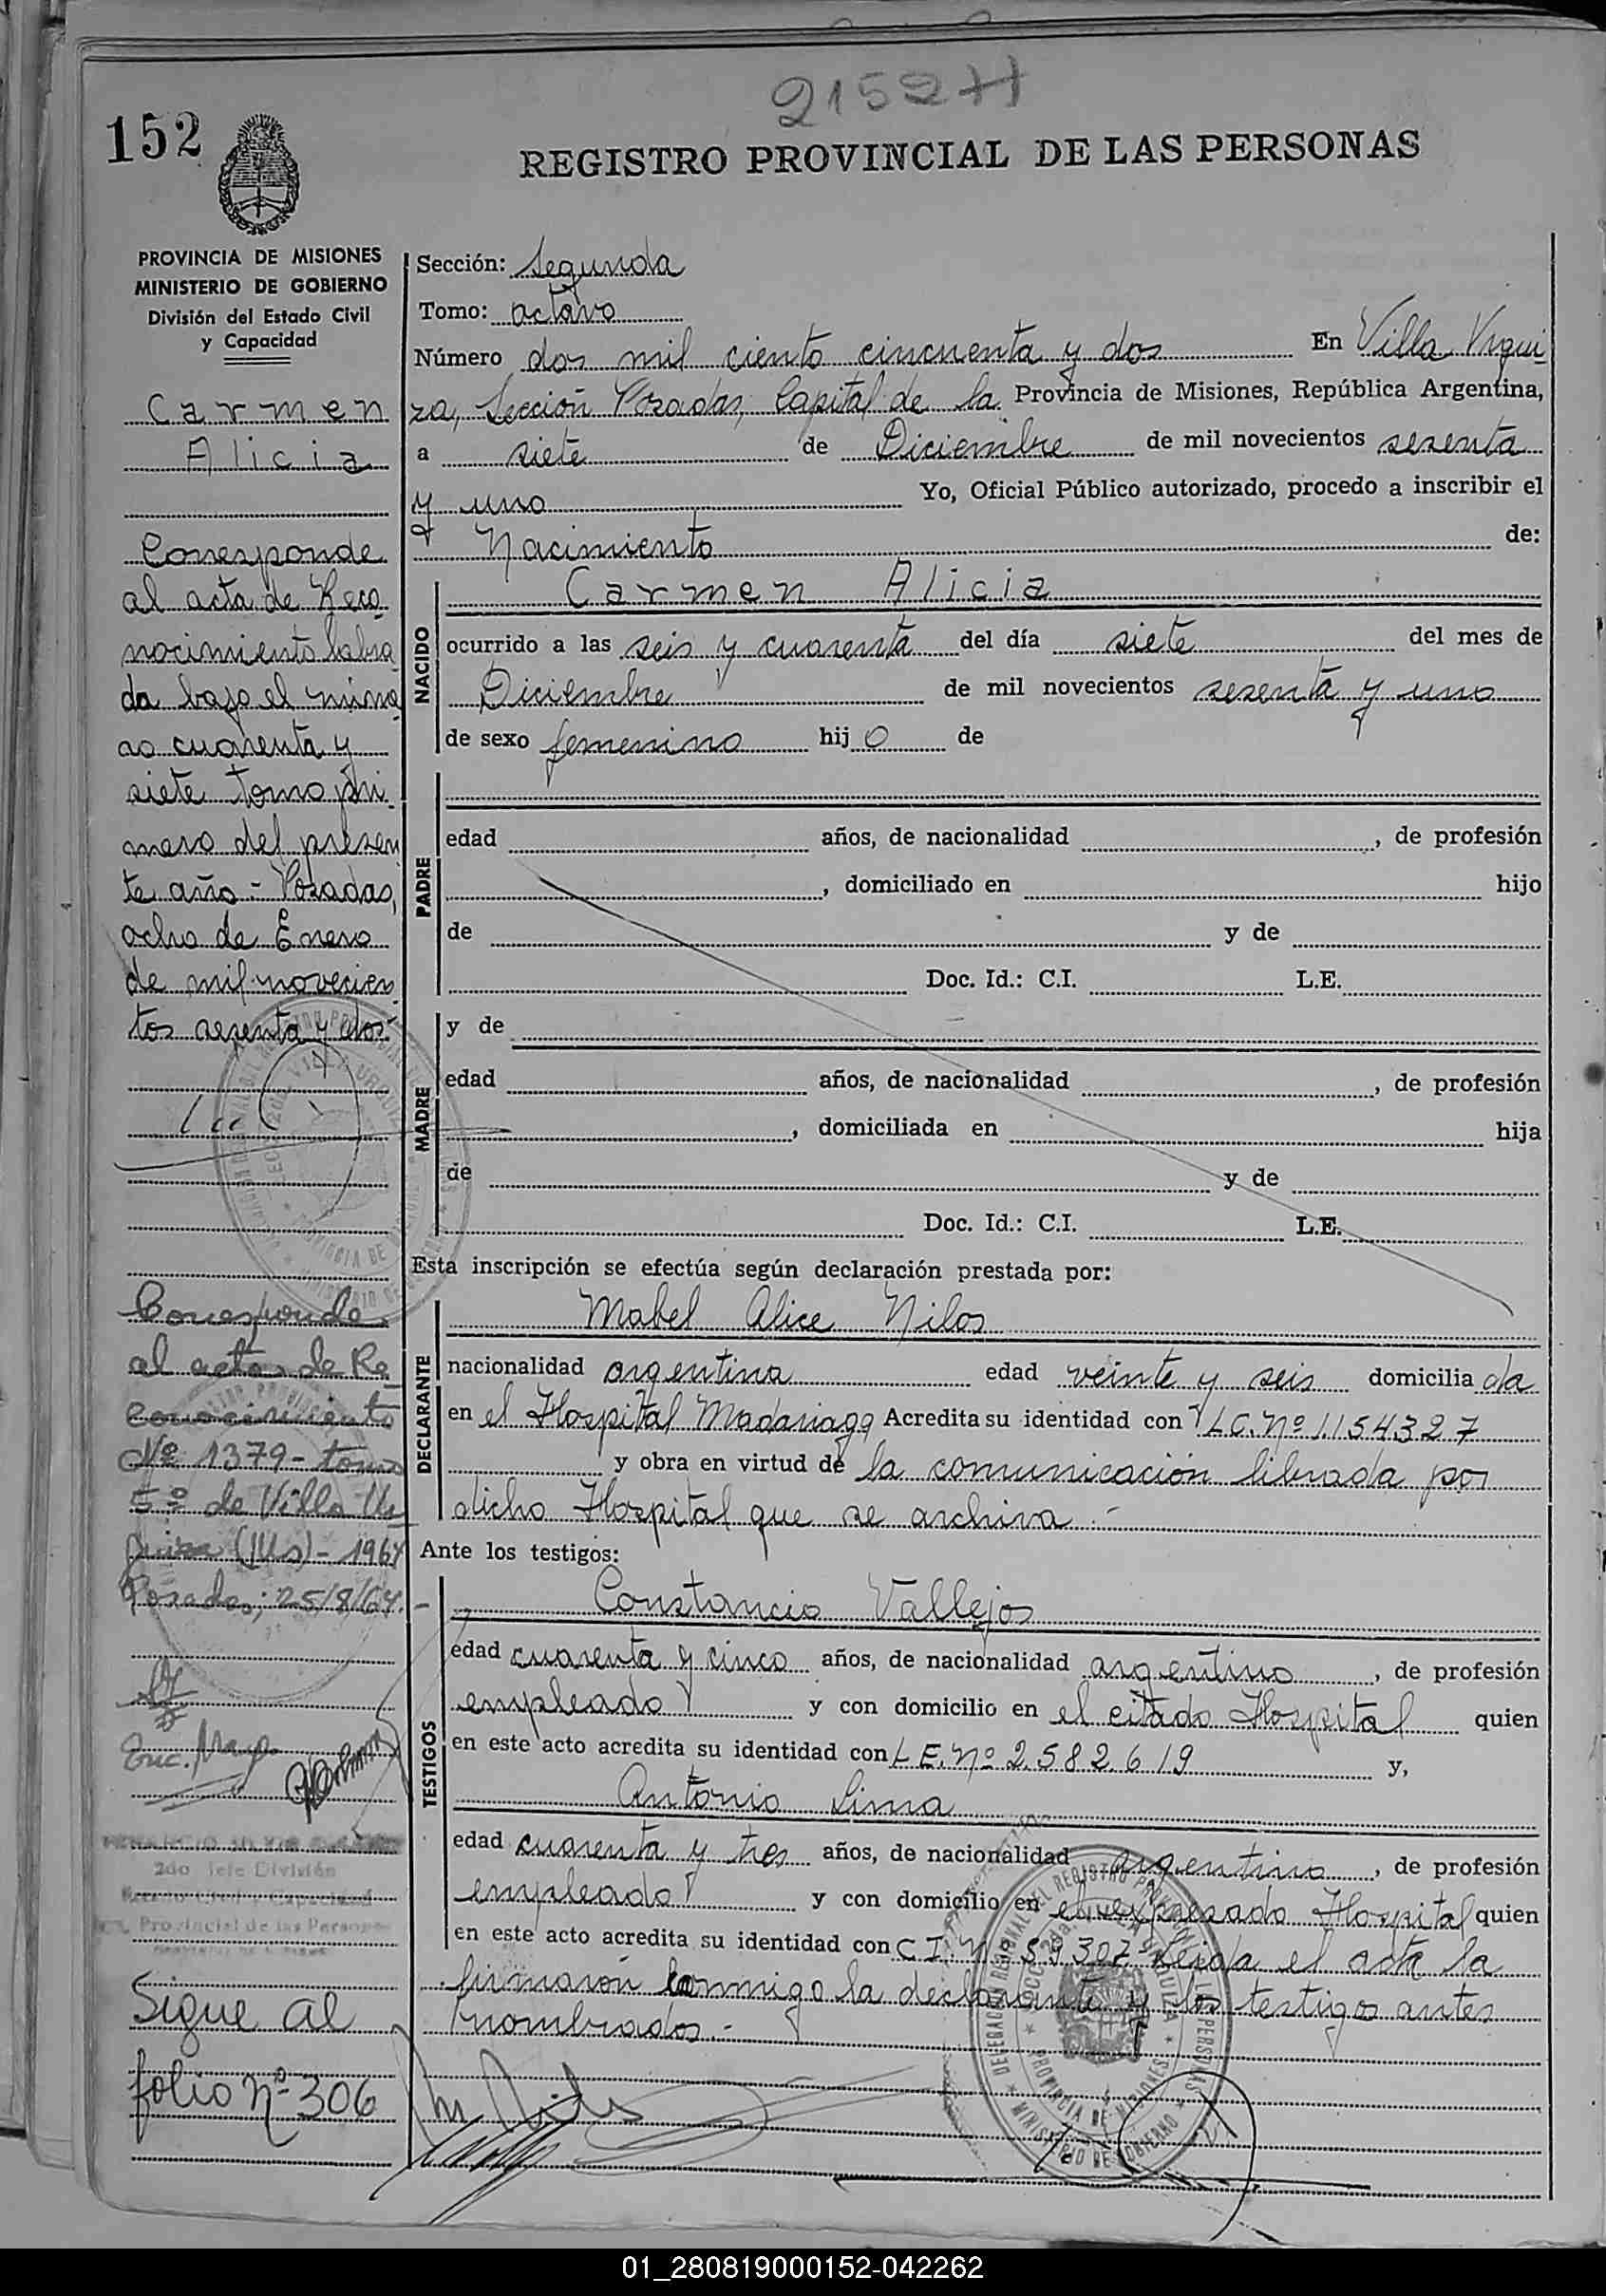 2152 H
152
REGISTRO PROVINCIAL DE LAS PERSONAS
PROVINCIA DE MISIONES
MINISTERIO DE GOBIERNO
División del Estado Civil
y Capacidad
Carmen
Alicia
Corresponde
al acta de Reco
nocimiento labra
da bajo el núme
ro cuarenta y
siete tomo pri
mero del presen
te año - Posadas,
ocho de Enero
de mil novecien
tos sesenta y dos.
Corresponde
al acta de Re
conocimiento
Nº 1379 - tomo
5º de Villa Ur
quiza (Ms) - 1964
Posadas, 25/8/64.-
2do Jefe División
Provincial de las Personas
Sigue al
folio Nº 306
Sección: Segunda
Tomo: octavo
Número dos mil ciento cincuenta y dos En Villa Urqui
za, Sección Posadas, Capital de la Provincia de Misiones, República Argentina,
a siete de Diciembre de mil novecientos sesenta
y uno Yo, Oficial Público autorizado, procedo a inscribir el
Nacimiento de:
NACIDO
Carmen Alicia
ocurrido a las seis y cuarenta del día siete del mes de
Diciembre de mil novecientos sesenta y uno
de sexo femenino hij o de
PADRE
edad años, de nacionalidad , de profesión
, domiciliado en hijo
de y de
Doc. Id.: C.I. L.E.
MADRE
y de
edad años, de nacionalidad , de profesión
, domiciliada en hija
de y de
Doc. Id.: C.I. L.E.
Esta inscripción se efectúa según declaración prestada por:
DECLARANTE
Mabel Alice Nilos
nacionalidad argentina edad veinte y seis domicilia da
en el Hospital Madariaga Acredita su identidad con L.C. Nº 1.154.327
y obra en virtud de la comunicación librada por
dicho Hospital que se archiva.-
Ante los testigos:
TESTIGOS
Constancio Vallejos
edad cuarenta y cinco años, de nacionalidad argentino, de profesión
empleado y con domicilio en el citado Hospital quien
en este acto acredita su identidad con L.E. Nº 2.582.619 y,
Antonio Lima
edad cuarenta y tres años, de nacionalidad argentino, de profesión
empleado y con domicilio en el expresado Hospital quien
en este acto acredita su identidad con C.I. Nº 59.307. Leida el acta la
firmaron conmigo la declarante y los testigos antes
nombrados.-
01_280819000152-042262